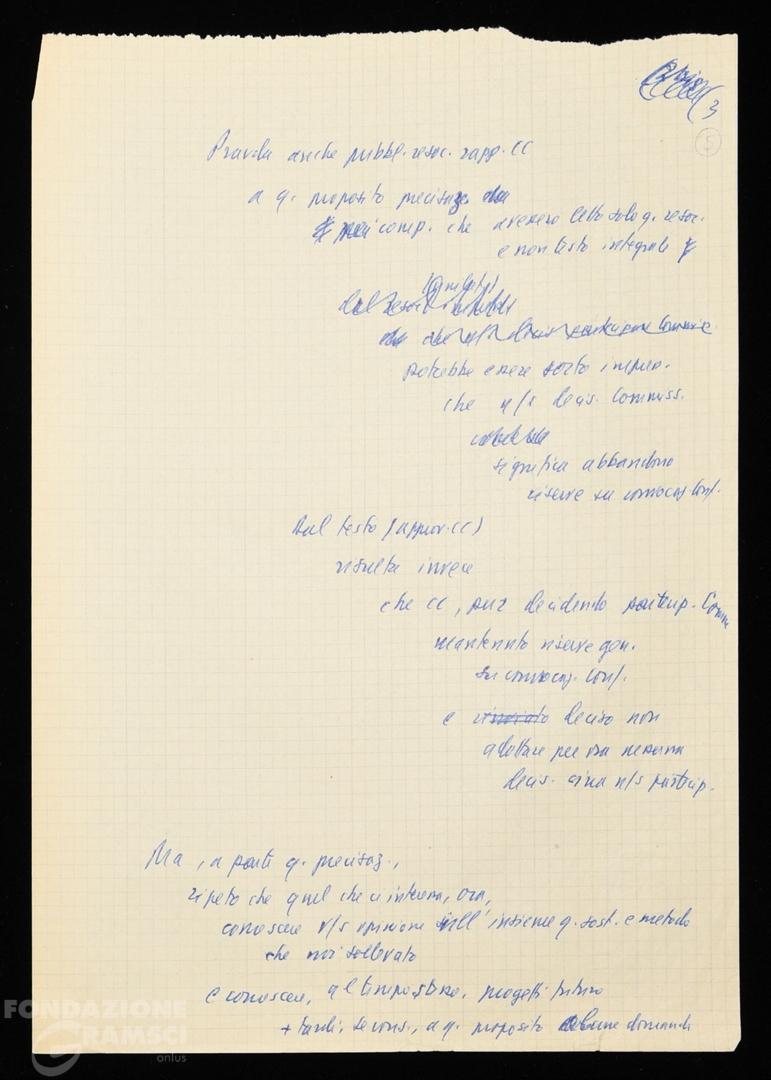 3
5
Pravda anche pubbl. resoc. rapp. CC
a q. proposito precisaz.
comp. che avevero letto solo q. resoc.
e non testo integrale
potrebbe essere sorto impres.
che n/s decis. Commiss.
significa abbandono
riserve su convocaz. Conf.
Dal testo (approv. CC)
risulta invece
che CC, pur decidendo partecip. Comm
mantenuto riserve gen.
su convocaz. Conf.
e deciso non
adottare per ora nessuna
decis. circa n/s partecip.
Ma, a parte q. precisaz.,
ripeto che quel che ci interessa, ora,
conoscere v/s opinione sull'insieme q. sost. e metodo
che noi sollevato
e conoscere, al tempo stesso, progetti futuro
+ tardi, se cons., a q. proposito alcune domande
FONDAZIONE
GRAMSCI
onlus